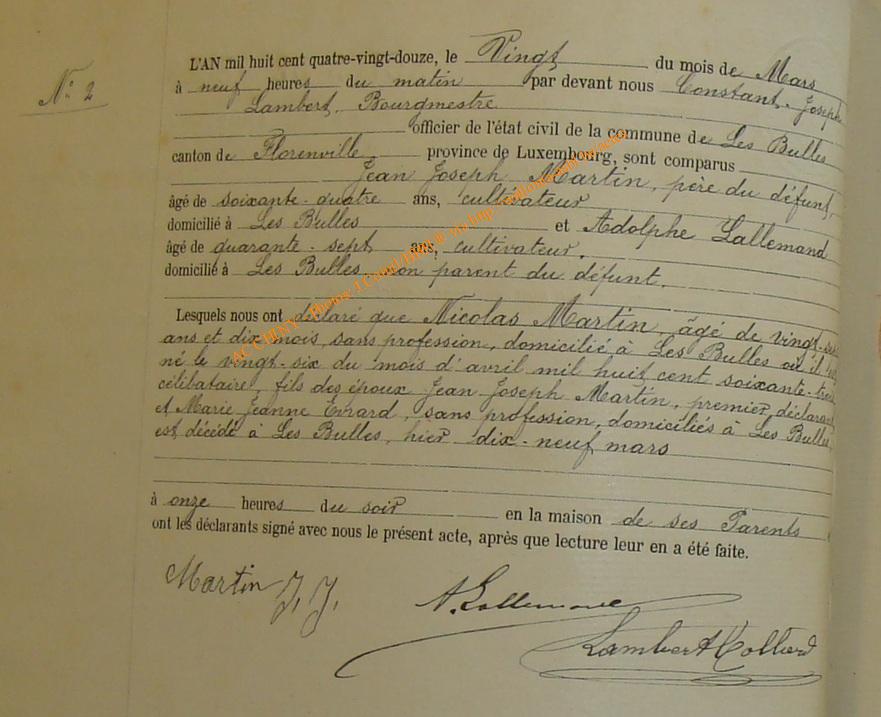 N° 2
L'AN mil huit cent quatre-vingt-douze, le Vingt du mois de Mars
à neuf heures du matin par devant nous Constant-Joseph
Lambert, Bourgmestre
officier de l'état civil de la commune de Les Bulles
canton de Florenville province de Luxembourg, sont comparus
Jean Joseph Martin, père du défunt,
âgé de soixante-quatre ans, cultivateur
domicilié à Les Bulles et Adolphe Lallemand
âgé de quarante-sept ans, cultivateur,
domicilié à Les Bulles, non parent du défunt.
Lesquels nous ont déclaré que Nicolas Martin, âgé de vingt-
ans et dix mois, sans profession, domicilié à Les Bulles où il
né le vingt-six du mois d'avril mil huit cent soixante-trois
célibataire, fils des époux Jean Joseph Martin, premier déclarant
et Marie Jeanne Evrard, sans profession, domiciliés à Les Bulles,
est décédé à Les Bulles, hier dix-neuf mars
à onze heures du soir en la maison de ses Parents
ont les déclarants signé avec nous le présent acte, après que lecture leur en a été faite.
Martin J. J.
A. Lallemand
Lambert